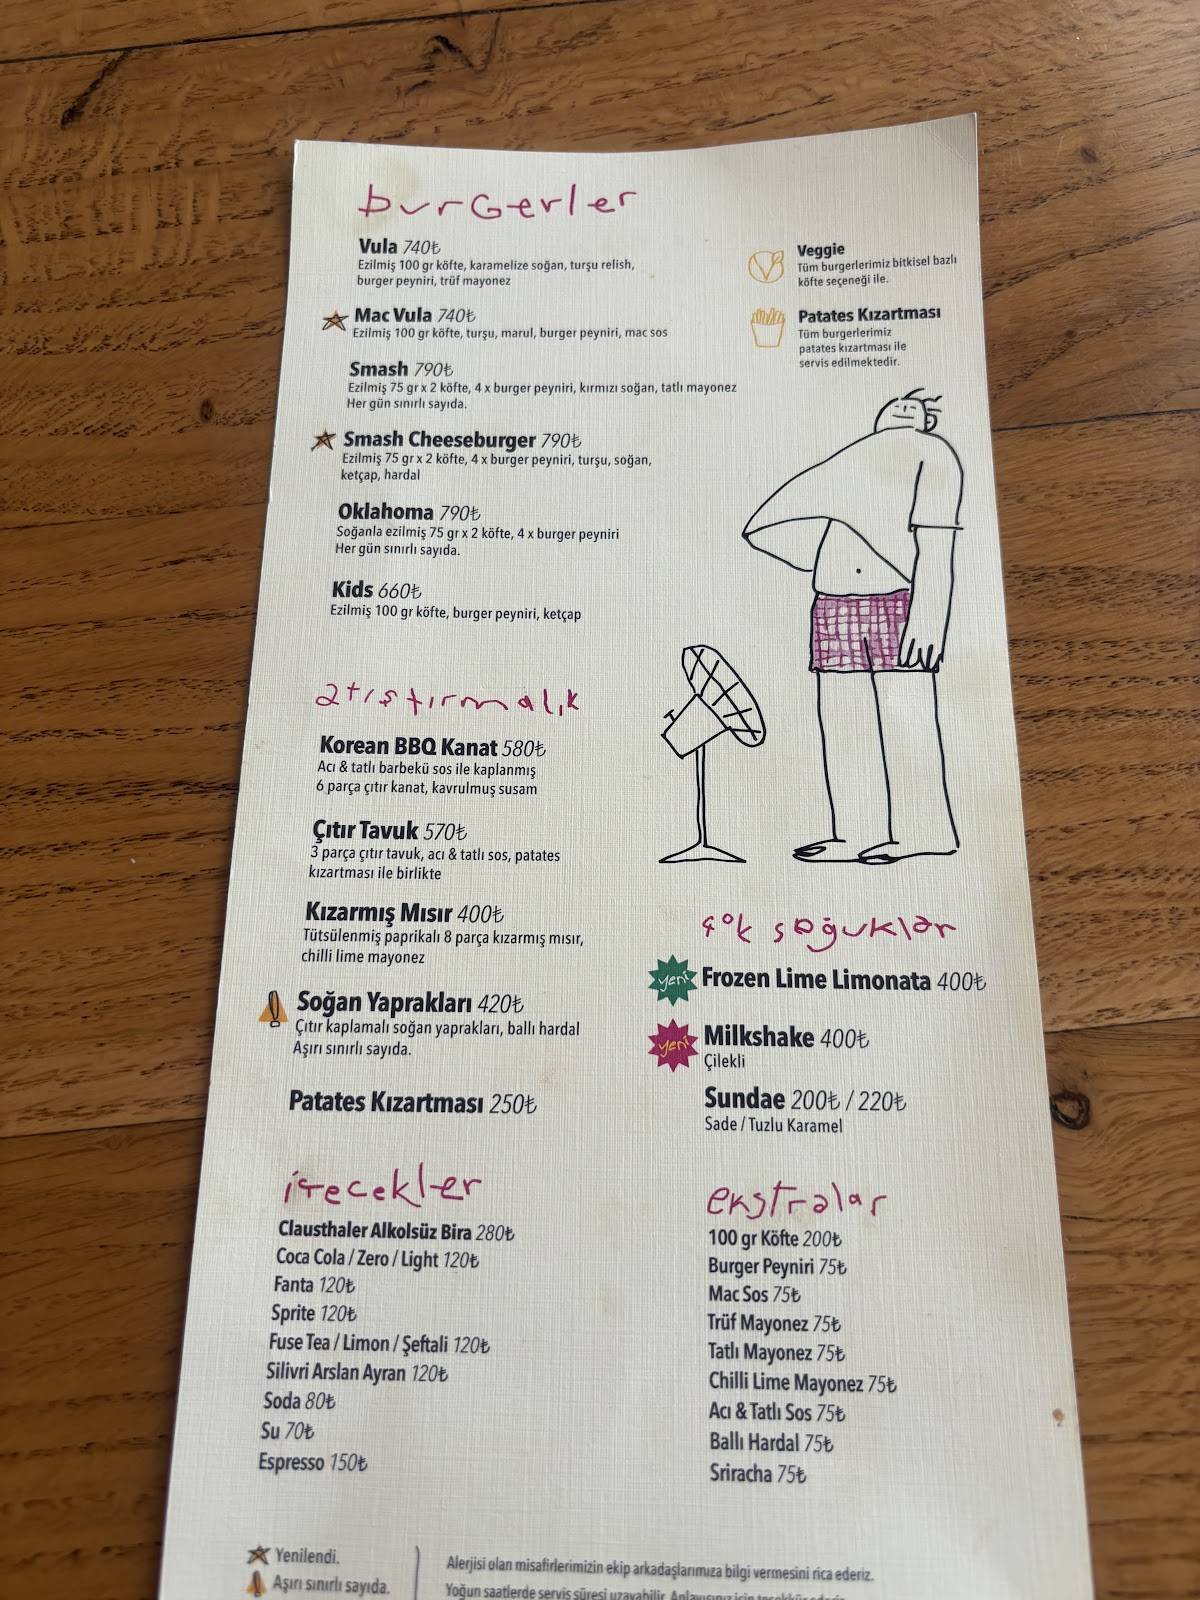 burgerler
Vula 740₺
Ezilmiş 100 gr köfte, karamelize soğan, turşu relish,
burger peyniri, trüf mayonez
Mac Vula 740₺
Ezilmiş 100 gr köfte, turşu, marul, burger peyniri, mac sos
Smash 790₺
Ezilmiş 75 gr x 2 köfte, 4 x burger peyniri, kırmızı soğan, tatlı mayonez
Her gün sınırlı sayıda.
Smash Cheeseburger 790₺
Ezilmiş 75 gr x 2 köfte, 4 x burger peyniri, turşu, soğan,
ketçap, hardal
Oklahoma 790₺
Soğanla ezilmiş 75 gr x 2 köfte, 4 x burger peyniri
Her gün sınırlı sayıda.
Kids 660₺
Ezilmiş 100 gr köfte, burger peyniri, ketçap
Veggie
Tüm burgerlerimiz bitkisel bazlı
köfte seçeneği ile.
Patates Kızartması
Tüm burgerlerimiz
patates kızartması ile
servis edilmektedir.
atıştırmalık
Korean BBQ Kanat 580₺
Acı & tatlı barbekü sos ile kaplanmış
6 parça çıtır kanat, kavrulmuş susam
Çıtır Tavuk 570₺
3 parça çıtır tavuk, acı & tatlı sos, patates
kızartması ile birlikte
Kızarmış Mısır 400₺
Tütsülenmiş paprikalı 8 parça kızarmış mısır,
chilli lime mayonez
Soğan Yaprakları 420₺
Çıtır kaplamalı soğan yaprakları, ballı hardal
Aşırı sınırlı sayıda.
Patates Kızartması 250₺
çok soğuklar
yeni Frozen Lime Limonata 400₺
yeni Milkshake 400₺
Çilekli
Sundae 200₺ / 220₺
Sade / Tuzlu Karamel
içecekler
Clausthaler Alkolsüz Bira 280₺
Coca Cola / Zero / Light 120₺
Fanta 120₺
Sprite 120₺
Fuse Tea / Limon / Şeftali 120₺
Silivri Arslan Ayran 120₺
Soda 80₺
Su 70₺
Espresso 150₺
ekstralar
100 gr Köfte 200₺
Burger Peyniri 75₺
Mac Sos 75₺
Trüf Mayonez 75₺
Tatlı Mayonez 75₺
Chilli Lime Mayonez 75₺
Acı & Tatlı Sos 75₺
Ballı Hardal 75₺
Sriracha 75₺
Yenilendi.
Aşırı sınırlı sayıda.
Alerjisi olan misafirlerimizin ekip arkadaşlarımıza bilgi vermesini rica ederiz.
Yoğun saatlerde servis süresi uzayabilir. Anlayışınız için